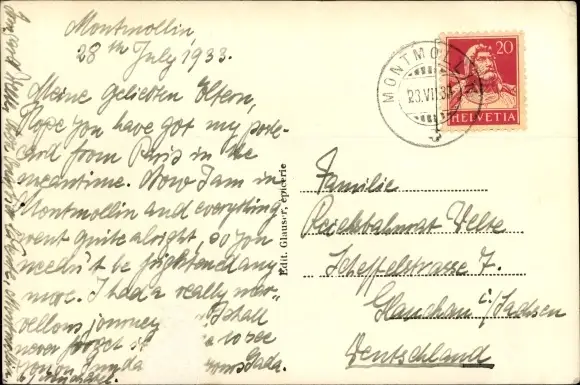 Montmollin,
28th July 1933.
Meine geliebten Eltern,
Hope you have got my post-
card from Paris in the
meantime. Now I am in
Montmollin and everything
went quite alright, so you
needn't be frightened any-
more. I had a really mar-
vellous journey I shall
never forget to see
you on Sunda
MONTMOLLIN
28.VII.33
20
HELVETIA
Edit. Glauser, épicerie
Familie
Reichsbahnrat Welse
Scheffelstrasse 7.
Glauchau i/Sachsen
Deutschland